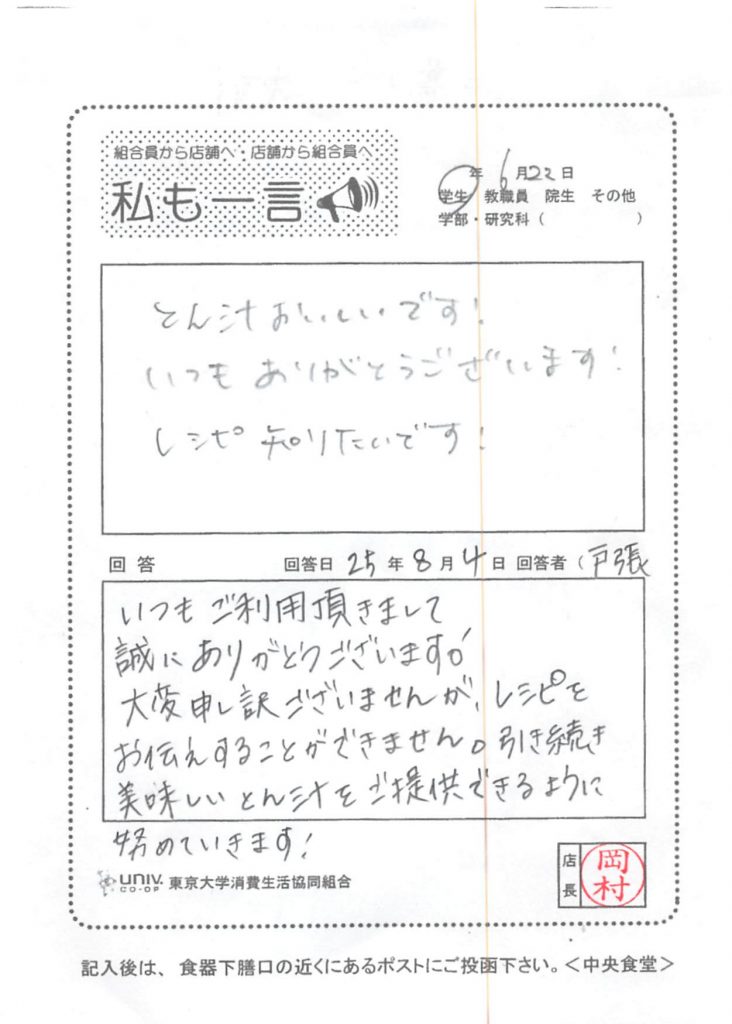 組合員から店舗へ・店舗から組合員へ
私も一言
年 6月22日
学生 教職員 院生 その他
学部・研究科( )
とん汁おいしいです!
いつもありがとうございます!
レシピ知りたいです!
回答 回答日 25年8月4日 回答者(戸張
いつもご利用頂きまして
誠にありがとうございます!
大変申し訳ございませんが、レシピを
お伝えすることができません。引き続き
美味しいとん汁をご提供できるように
努めていきます!
UNIV. CO-OP 東京大学消費生活協同組合
店長 岡村
記入後は、食器下膳口の近くにあるポストにご投函下さい。<中央食堂>